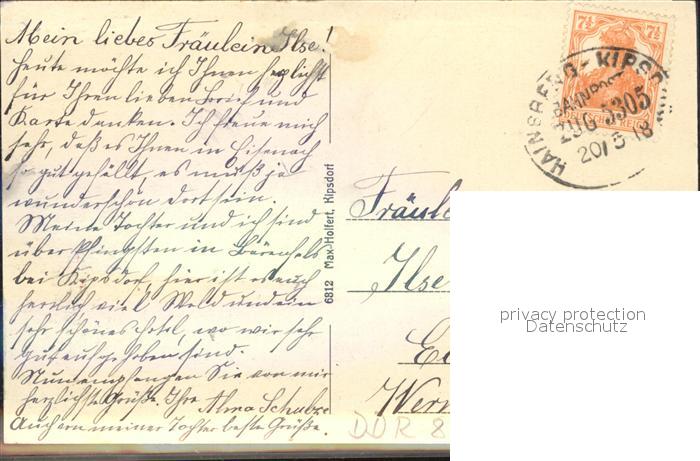 Mein liebes Fräulein Ilse!
Heute möchte ich Ihnen herzlichst
für Ihren lieben Brief und
Karte danken. Ich freue mich
sehr, daß es Ihnen in Eisenach
so gut gefällt, es muß ja
wunderschön dort sein.
Meine Tochter und ich sind
über Pfingsten in Bärenfels
bei Kipsdorf, hier ist es auch
herrlich viel Wald und ein
sehr schönes Hotel, wo wir sehr
gut aufgehoben sind.
Nun empfangen Sie von mir
herzlichste Grüße. Ihre Alma Schulze
Auch von meiner Tochter beste Grüße.
6812 Max-Holfert, Kipsdorf
7½ 7½
DEUTSCHES REICH
HAINSBERG-KIPSD
BAHNPOST
ZUG 5305
20/5 18
Fräule
Ilse
Ei
Wern
privacy protection
Datenschutz
DDR 8